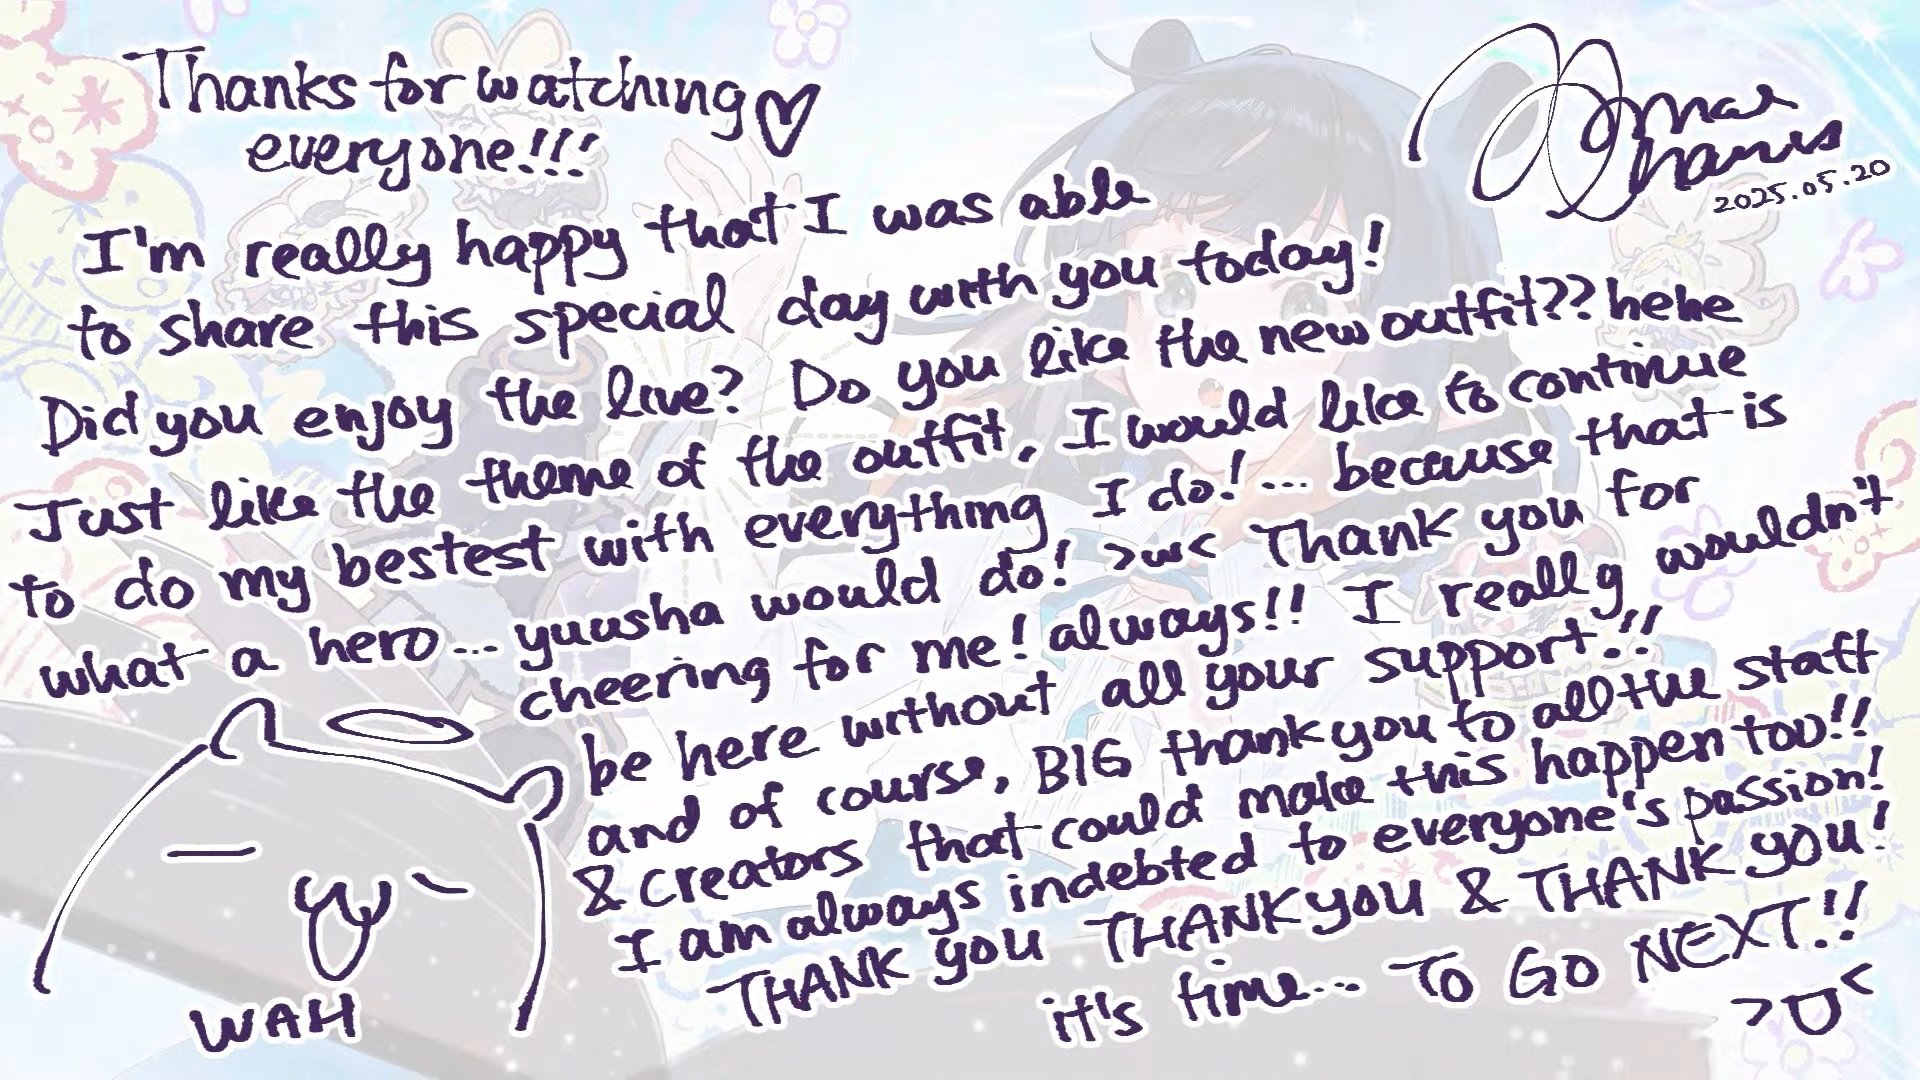 Thanks for watching ♡
everyone!!!
2025.05.20
I'm really happy that I was able
to share this special day with you today!
Did you enjoy the live? Do you like the new outfit?? hehe
Just like the theme of the outfit, I would like to continue
to do my bestest with everything I do!... because that is
what a hero... yuusha would do! >w< Thank you for
cheering for me! always!! I really wouldn't
be here without all your support!!
and of course, BIG thank you to all the staff
& creators that could make this happen too!!
I am always indebted to everyone's passion!
THANK you THANK you & THANK you!
it's time... TO GO NEXT!!
>D<
WAH